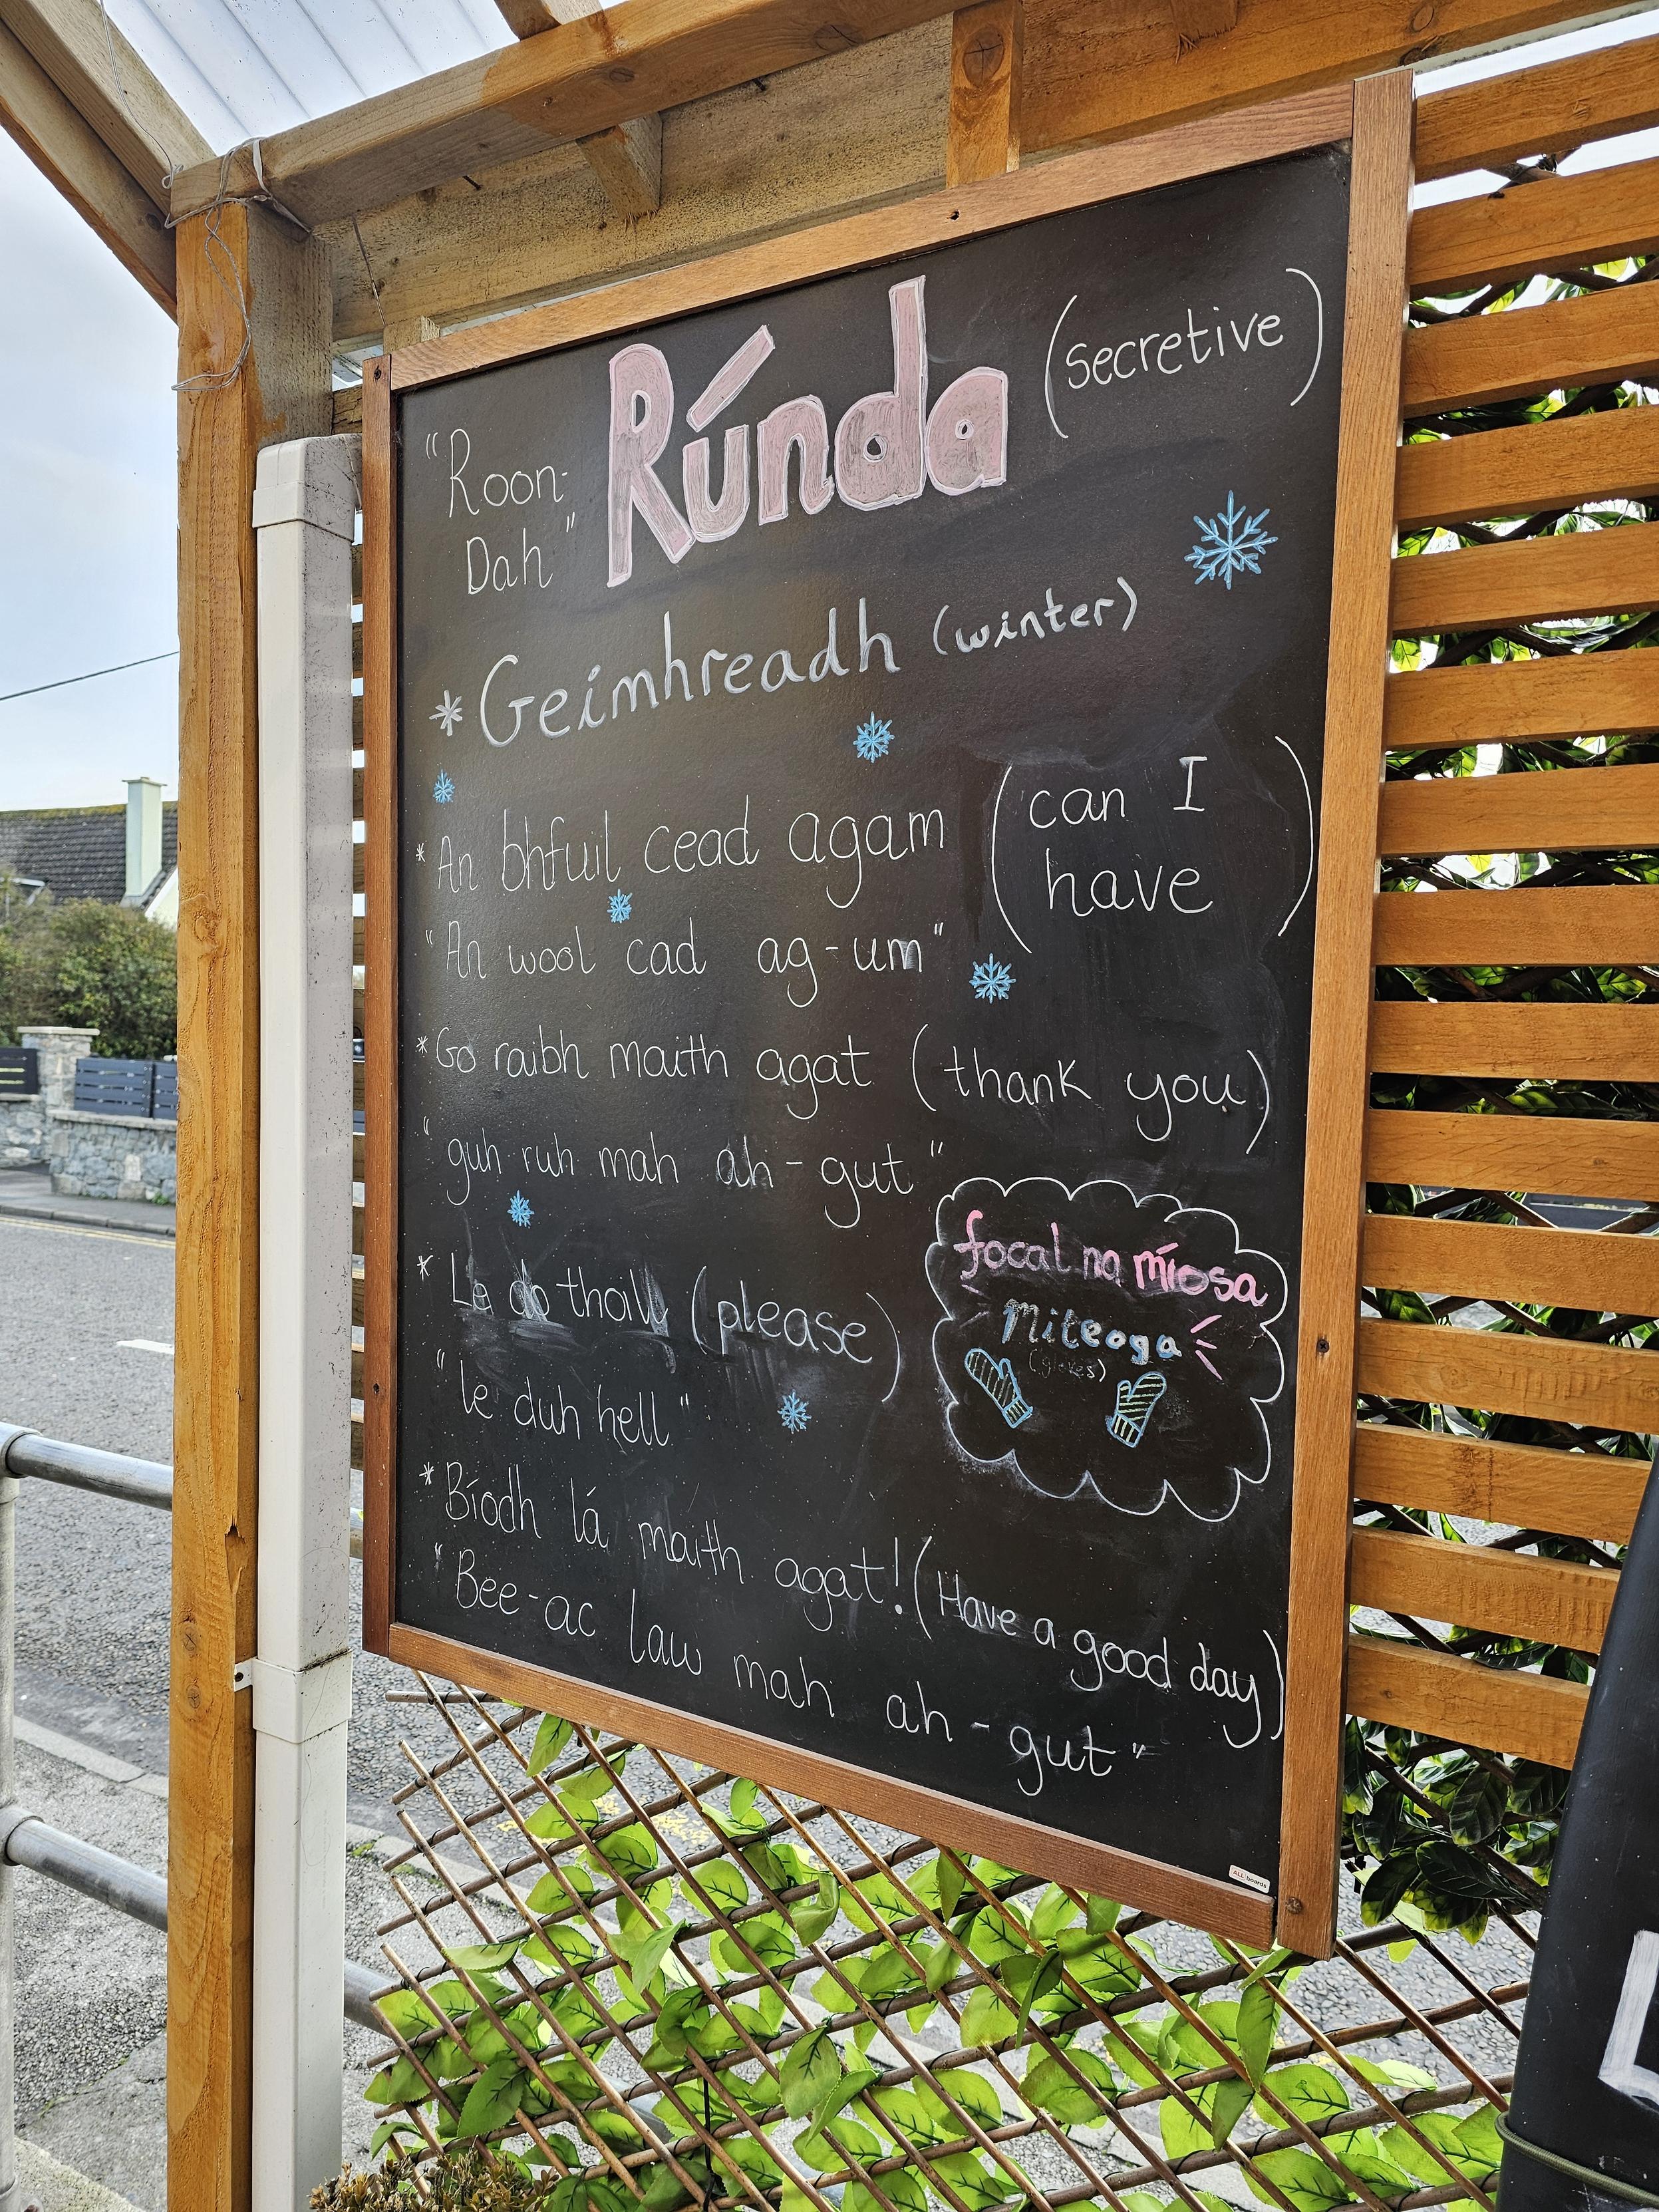 Rúnda (secretive)
"Roon-
Dah"
* Geimhreadh (winter)
* An bhfuil cead agam (can I
have)
"An wool cad ag-um"
* Go raibh maith agat (thank you)
"guh ruh mah ah-gut"
* Le do thoil (please)
"le duh hell"
focal na míosa
Miteoga
(gloves)
* Bíodh lá maith agat! (Have a good day)
"Bee-ac law mah ah-gut"
ALL boards